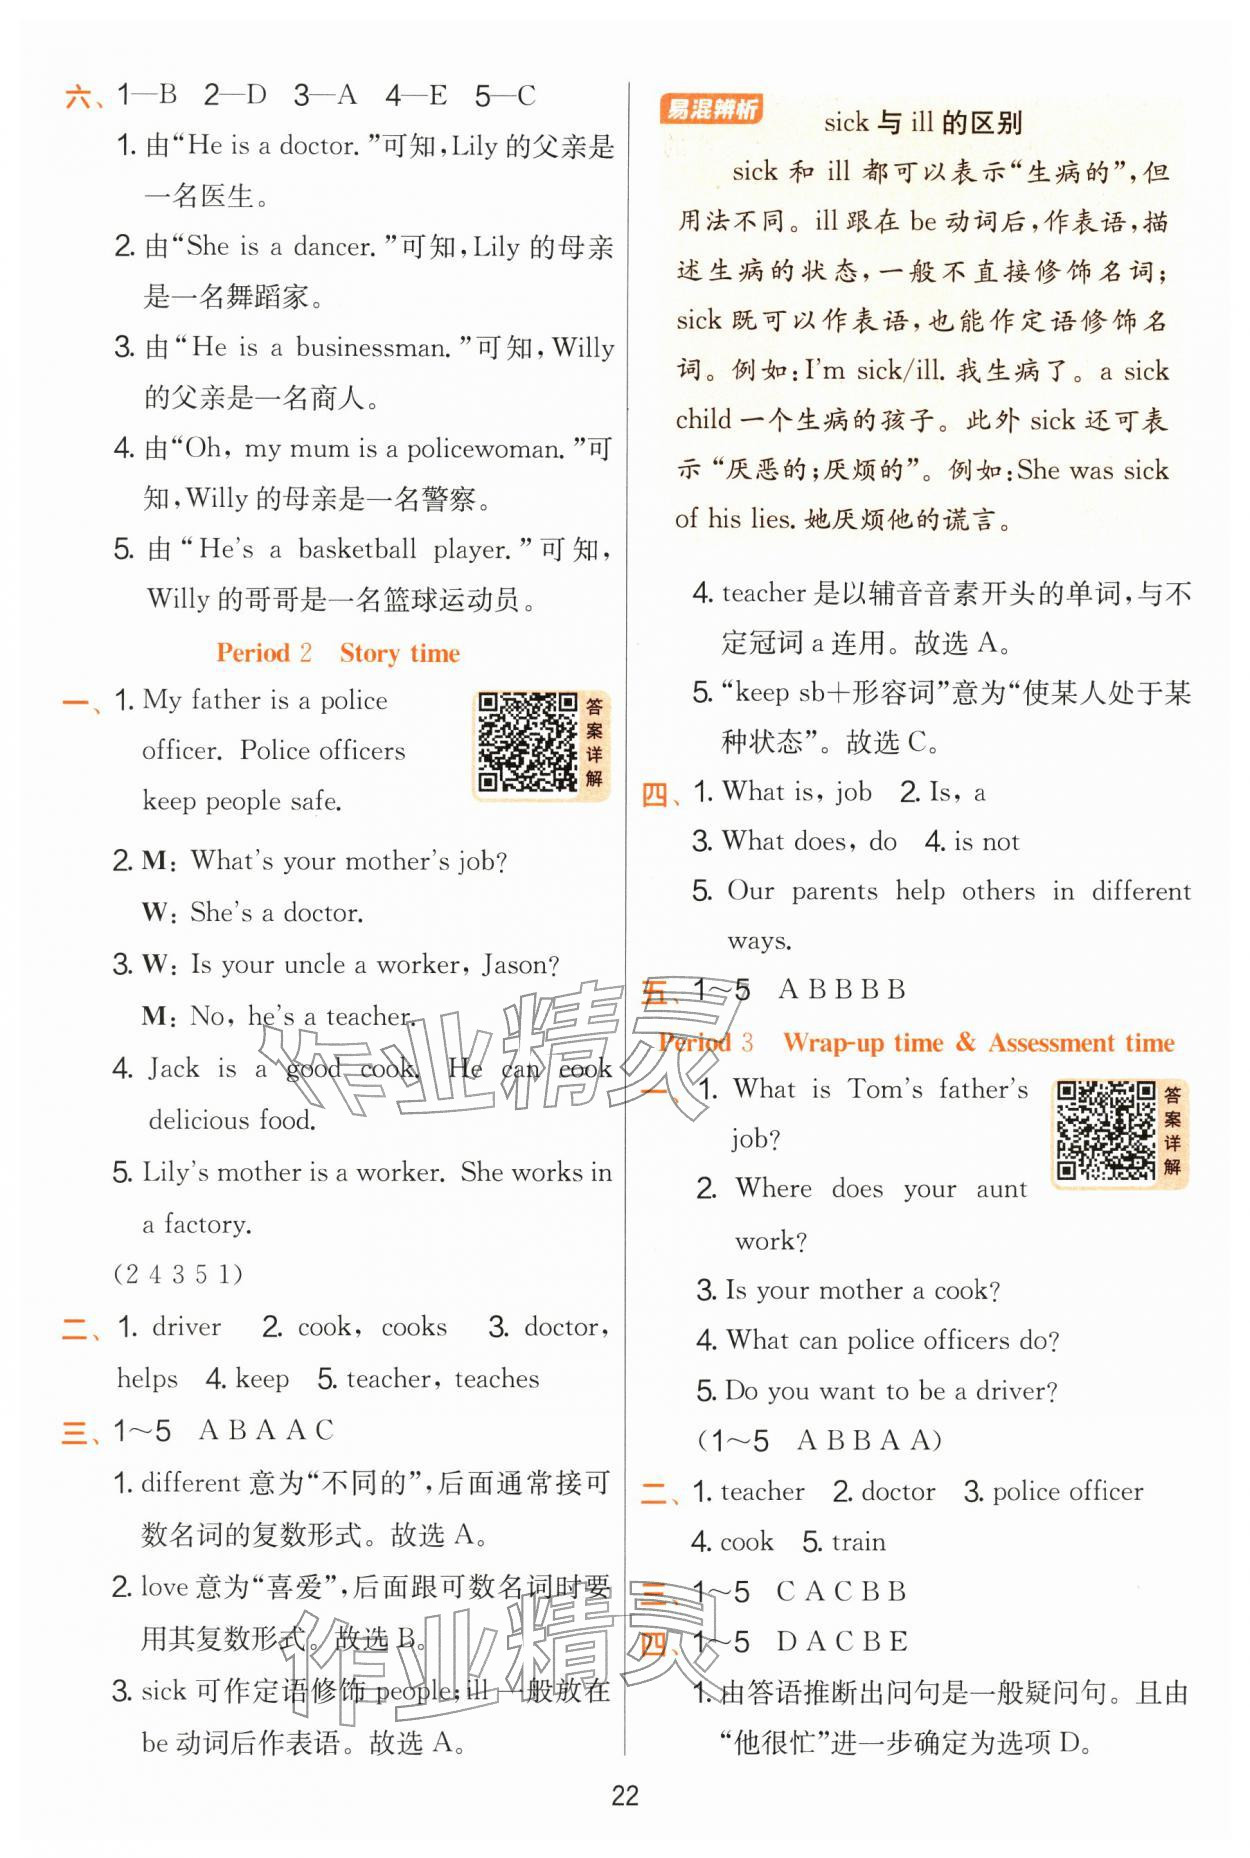 六、1—B 2—D 3—A 4—E 5—C
1. 由“He is a doctor.”可知,Lily的父亲是
一名医生。
2. 由“She is a dancer.”可知,Lily的母亲
是一名舞蹈家。
3. 由“He is a businessman.”可知,Willy
的父亲是一名商人。
4. 由“Oh, my mum is a policewoman.”可
知,Willy的母亲是一名警察。
5. 由“He's a basketball player.”可知,
Willy的哥哥是一名篮球运动员。
Period 2 Story time
一、1. My father is a police
officer. Police officers
keep people safe.
答案详解
2. M: What's your mother's job?
W: She's a doctor.
3. W: Is your uncle a worker, Jason?
M: No, he's a teacher.
4. Jack is a good cook. He can cook
delicious food.
5. Lily's mother is a worker. She works in
a factory.
(2 4 3 5 1)
二、1. driver 2. cook, cooks 3. doctor,
helps 4. keep 5. teacher, teaches
三、1~5 A B A A C
1. different意为“不同的”,后面通常接可
数名词的复数形式。故选A。
2. love意为“喜爱”,后面跟可数名词时要
用其复数形式。故选B。
3. sick可作定语修饰people;ill一般放在
be动词后作表语。故选A。
易混辨析
sick与ill的区别
sick和ill都可以表示“生病的”,但
用法不同。ill跟在be动词后,作表语,描
述生病的状态,一般不直接修饰名词;
sick既可以作表语,也能作定语修饰名
词。例如:I'm sick/ill.我生病了。a sick
child一个生病的孩子。此外sick还可表
示“厌恶的;厌烦的”。例如:She was sick
of his lies.她厌烦他的谎言。
4. teacher是以辅音音素开头的单词,与不
定冠词a连用。故选A。
5. “keep sb+形容词”意为“使某人处于某
种状态”。故选C。
四、1. What is, job 2. Is, a
3. What does, do 4. is not
5. Our parents help others in different
ways.
五、1~5 A B B B B
Period 3 Wrap-up time & Assessment time
一、1. What is Tom's father's
job?
2. Where does your aunt
work?
答案详解
3. Is your mother a cook?
4. What can police officers do?
5. Do you want to be a driver?
(1~5 A B B A A)
二、1. teacher 2. doctor 3. police officer
4. cook 5. train
三、1~5 C A C B B
四、1~5 D A C B E
1. 由答语推断出问句是一般疑问句。且由
“他很忙”进一步确定为选项D。
22
作业精灵
作业精灵